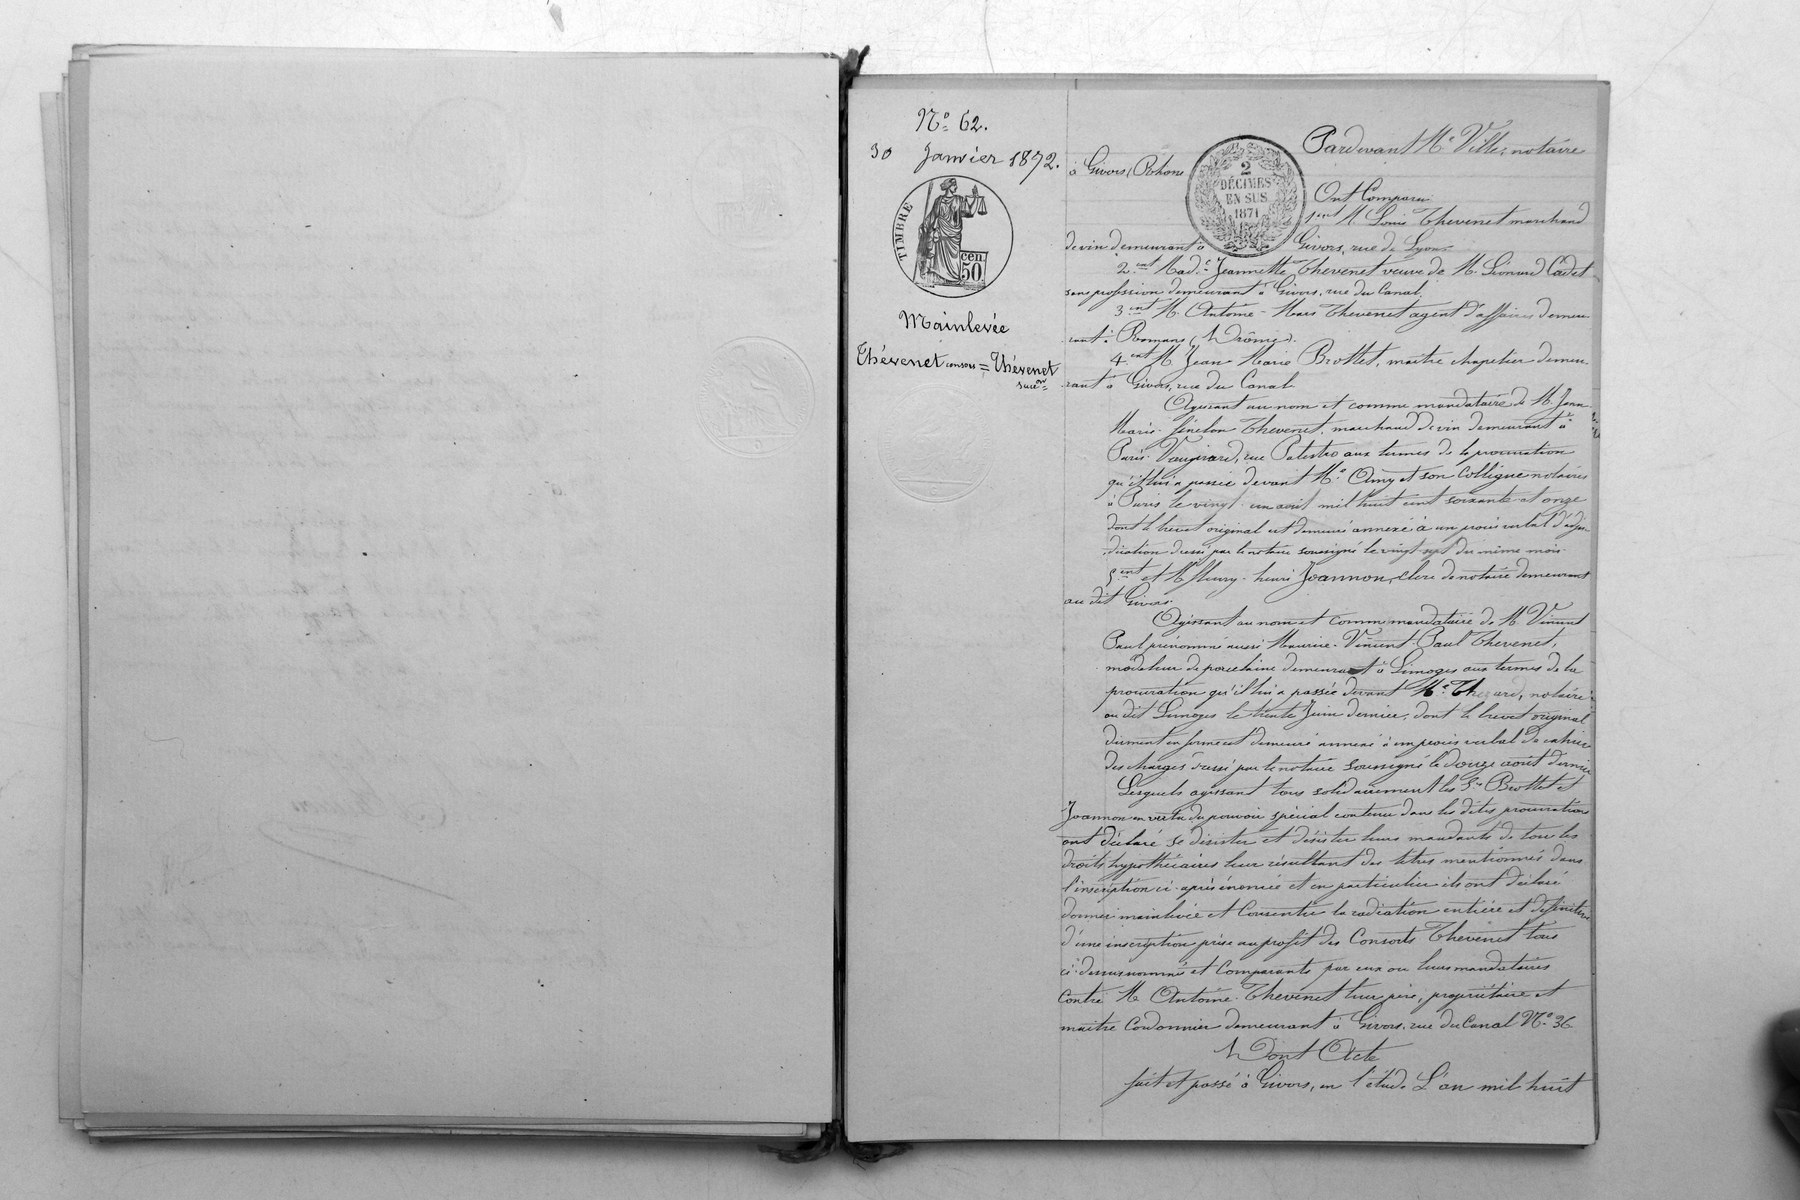 N° 62.
30 Janvier 1872.
TIMBRE
50 cen
Mainlevée
Thévenet consors = Thévenet
succ.on
2
DÉCIMES
EN SUS
1871
Pardevant Me Ville, notaire
à Givors, (Rhône
Ont Comparu
1ent M. Louis Thevenet marchand
de vin demeurant à Givors, rue de Lyon.
2ent Made Jeannette Thevenet veuve de M. Léonard Cadet
sans profession demeurant à Givors, rue du Canal.
3ent M. Antoine-Mars Thevenet agent d'affaires demeu
rant à Romans (Drôme).
4ent M. Jean Marie Brottet, maître chapelier demeu
rant à Givors, rue du Canal
Agissant au nom et comme mandataire de M. Jean
Marie-Fénelon Thevenet, marchand de vin demeurant à
Paris-Vaugirard, rue Palestro aux termes de la procuration
qu'il lui a passée devant Me Amy et son Collègue notaires
à Paris le vingt-un août mil huit cent soixante-et-onze
dont le brevet original est demeuré annexé à un procès verbal d'adju
dication dressé par le notaire soussigné le vingt-sept du même mois.
5ent et M. fleury-henri Joannon, clerc de notaire demeurant
au dit Givors.
Agissant au nom et comme mandataire de M. Vincent
Paul prénommé aussi Maurice-Vincent-Paul Thevenet,
modeleur de porcelaine demeurant à Limoges aux termes de la
procuration qu'il lui a passée devant Me Thezard, notaire
au dit Limoges le trente Juin dernier, dont le brevet original
dûment en forme est demeuré annexé à un procès verbal de cahier
des charges dressé par le notaire soussigné le douze août dernier
Lesquels agissant tous solidairement les Srs Brottet et
Joannon en vertu du pouvoir spécial contenu dans les dites procurations
ont déclaré se désister et désister leurs mandants de tous les
droits hypothécaires leur résultant des titres mentionnés dans
l'inscription ci-après énoncée et en particulier ils ont déclaré
donner mainlevée et Consentir la radiation entière et définitive
d'une inscription prise au profit des Consorts Thevenet tous
ci-dessus nommés et Comparants par eux ou leurs mandataires
Contre M. Antoine Thevenet leur père, propriétaire et
maître Cordonnier demeurant à Givors, rue du Canal N° 36
Dont Acte
fait et passé à Givors, en l'étude L'an mil huit